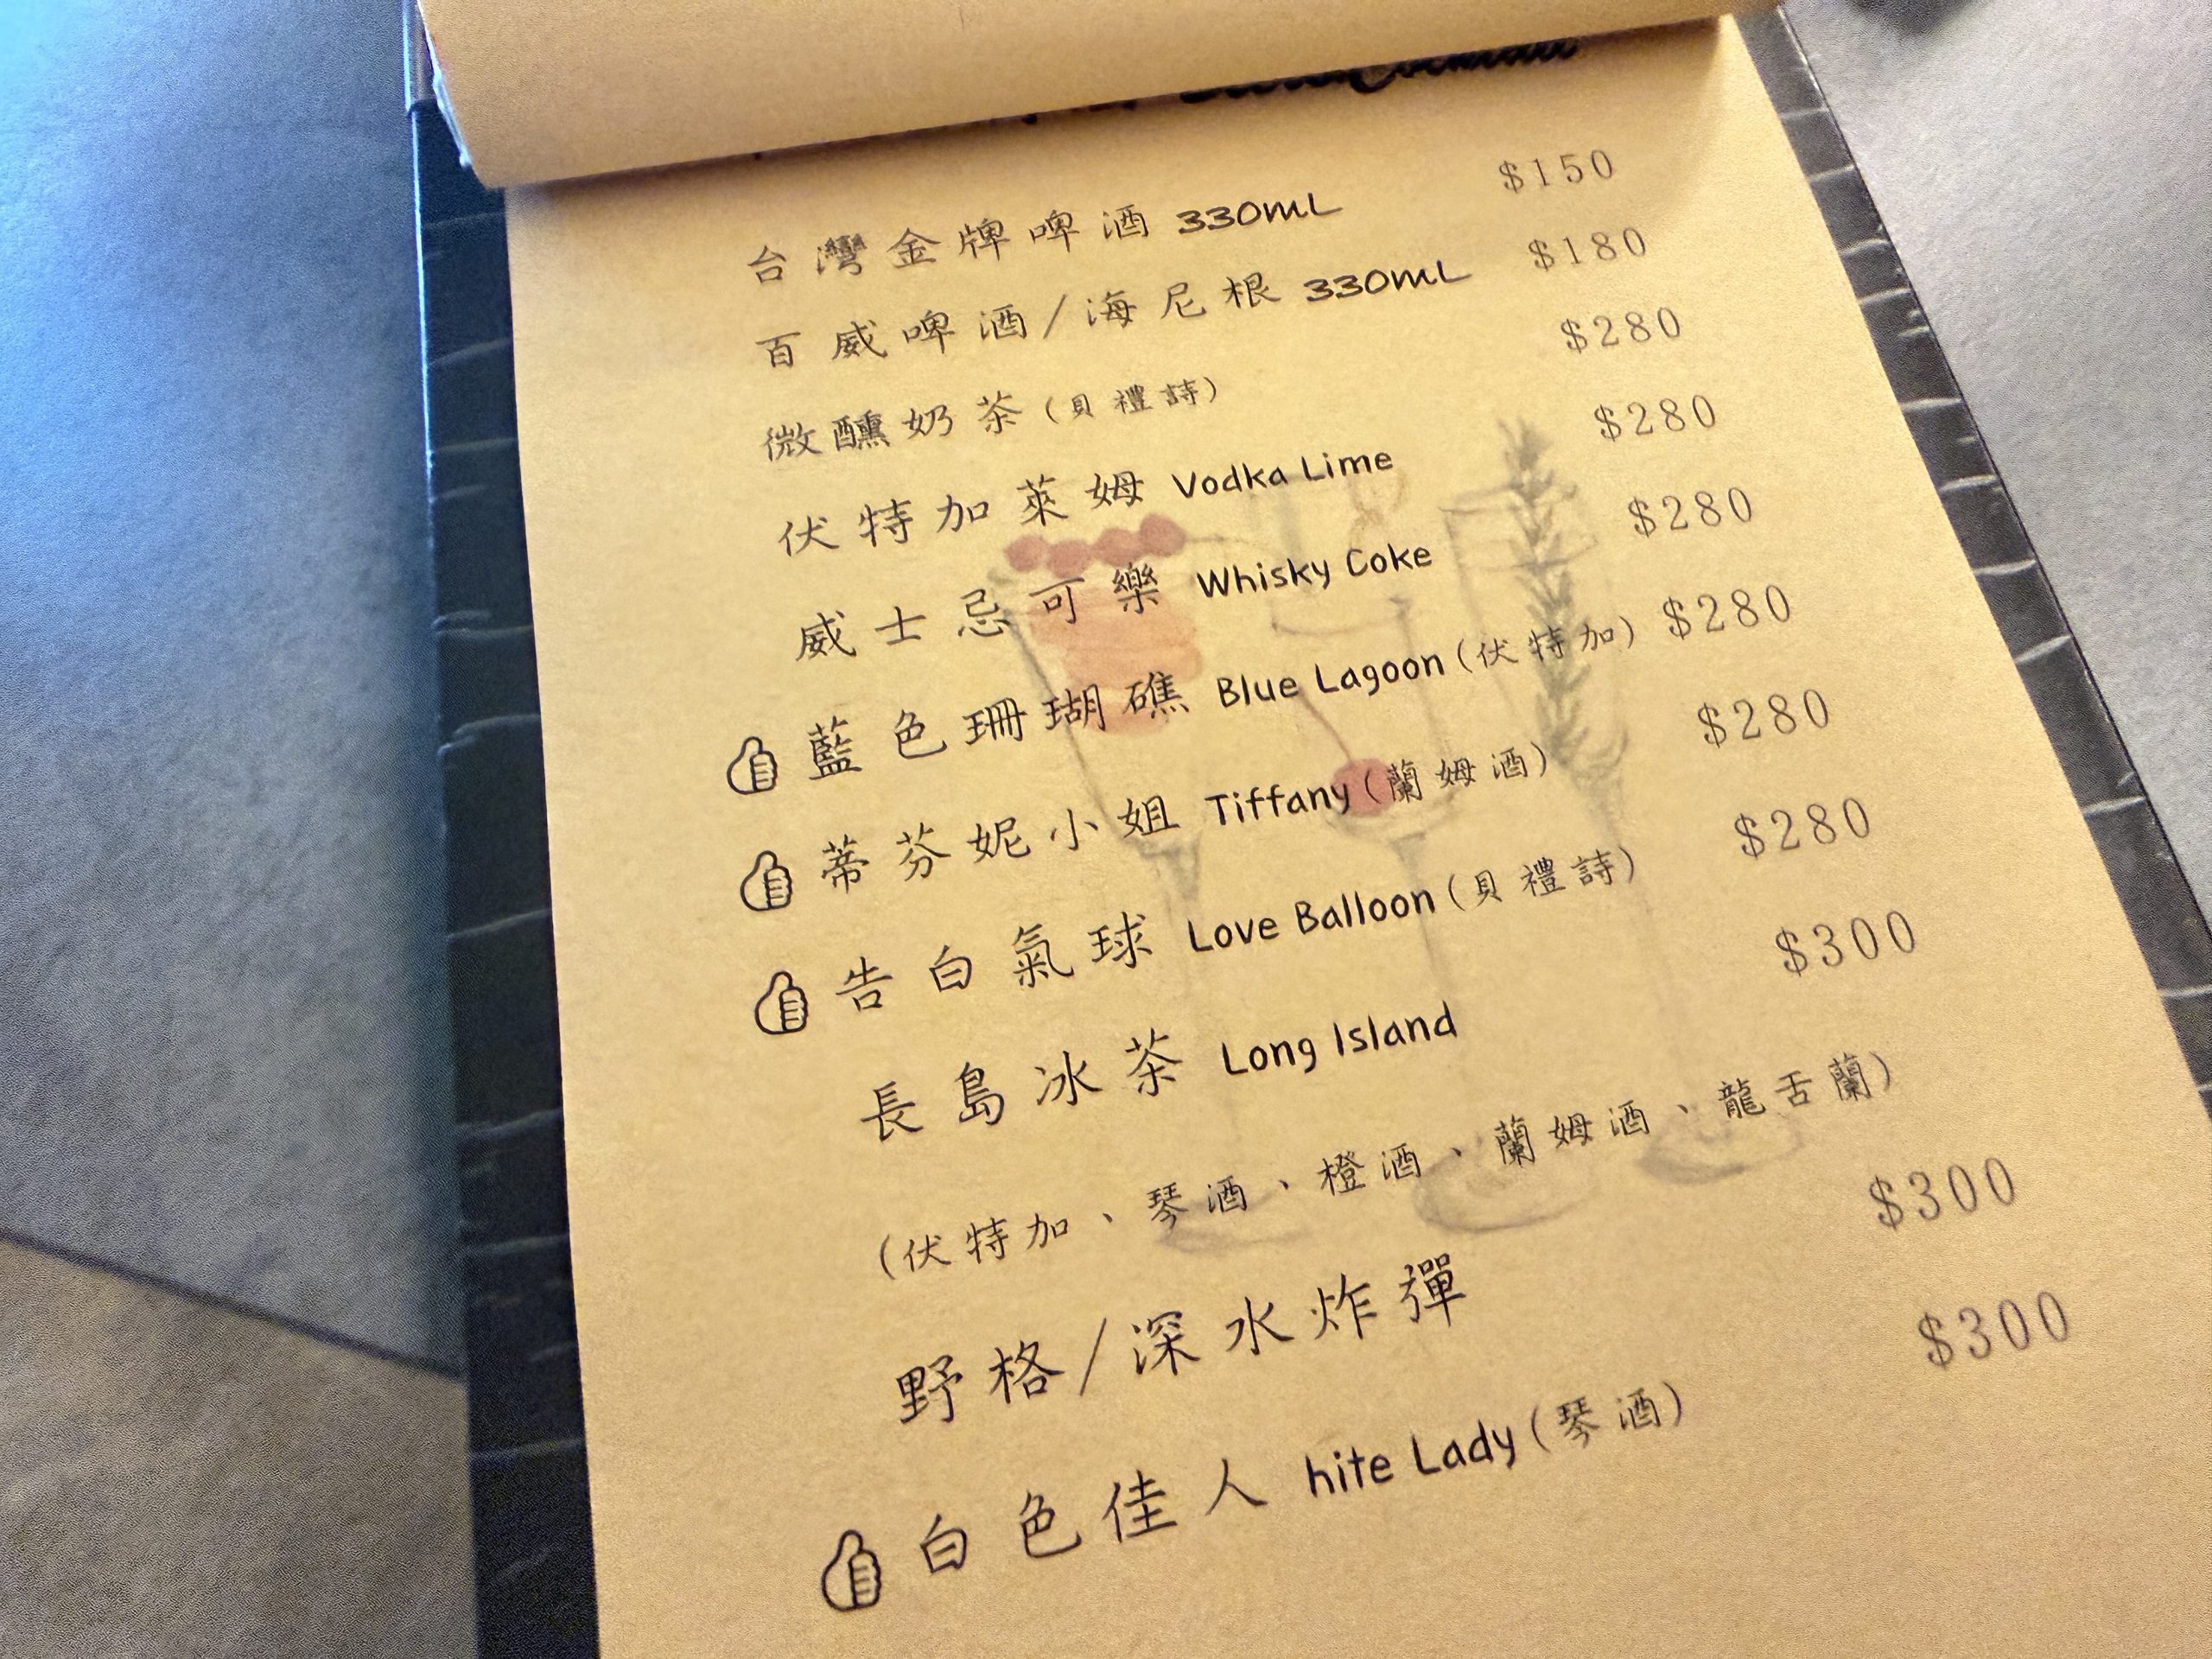 台灣金牌啤酒 330mL $150
百威啤酒/海尼根 330mL $180
微醺奶茶(貝禮詩) $280
伏特加萊姆 Vodka Lime $280
威士忌可樂 Whisky Coke $280
藍色珊瑚礁 Blue Lagoon(伏特加) $280
蒂芬妮小姐 Tiffany(蘭姆酒) $280
告白氣球 Love Balloon(貝禮詩) $280
長島冰茶 Long Island $300
(伏特加、琴酒、橙酒、蘭姆酒、龍舌蘭)
野格/深水炸彈 $300
白色佳人 hite Lady(琴酒) $300